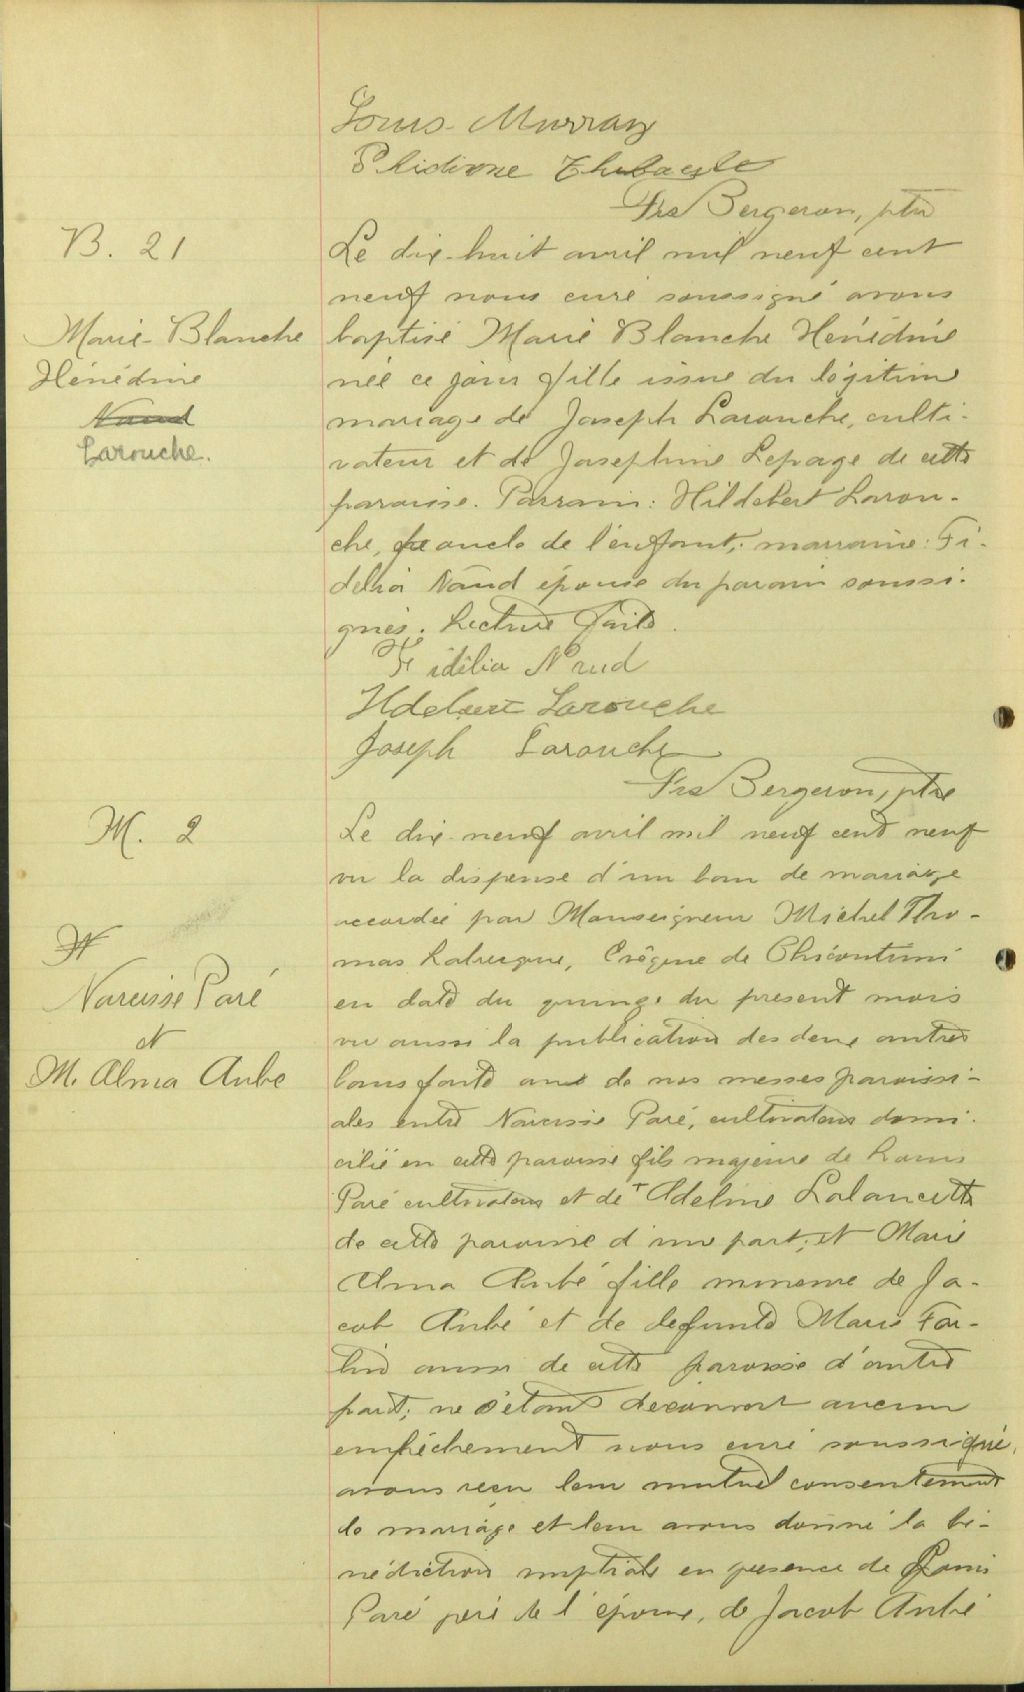 Louis Murray
Thibault
Frs Bergeron, ptre
B. 21
Marie-Blanche
Hénédine
Naud
Larouche.
Le dix-huit avril mil neuf cent
neuf nous curé soussigné avons
baptisé Marie Blanche Hénédine
née ce jour fille issue du légitime
mariage de Joseph Larouche, culti-
vateur et de Josephine Lepage de cette
paroisse. Parrain: Hildebert Larou-
che, oncle de l'enfant; marraine: Fi-
delia Naud épouse du parain soussi-
gnés. Lecture faite.
Fidélia Naud
Ildebert Larouche
Joseph Larouche
Frs Bergeron, ptre
M. 2
N
Narcisse Paré
et
M. Alma Aubé
Le dix-neuf avril mil neuf cent neuf
vu la dispense d'un ban de mariage
accordée par Monseigneur Michel Tho-
mas Labrecque, Evêque de Chicoutimi
en date du quinze du present mois
vu aussi la publication des deux autres
bans faite au de nos messes paroissi-
ales entre Narcisse Paré, cultivateur domi-
cilié en cette paroisse fils majeur de Louis
Paré cultivateur et de Adeline Lalancette
de cette paroisse d'une part; et Marie
Alma Aubé fille mineure de Ja-
cob Aubé et de defunte Marie For-
tin aussi de cette paroisse d'autre
part; ne s'étant decouvert aucun
empêchement nous curé soussigné,
avons reçu leur mutuel consentement
de mariage et leur avons donné la bé-
nédiction nuptiale en presence de Louis
Paré père de l'époux, de Jacob Aubé